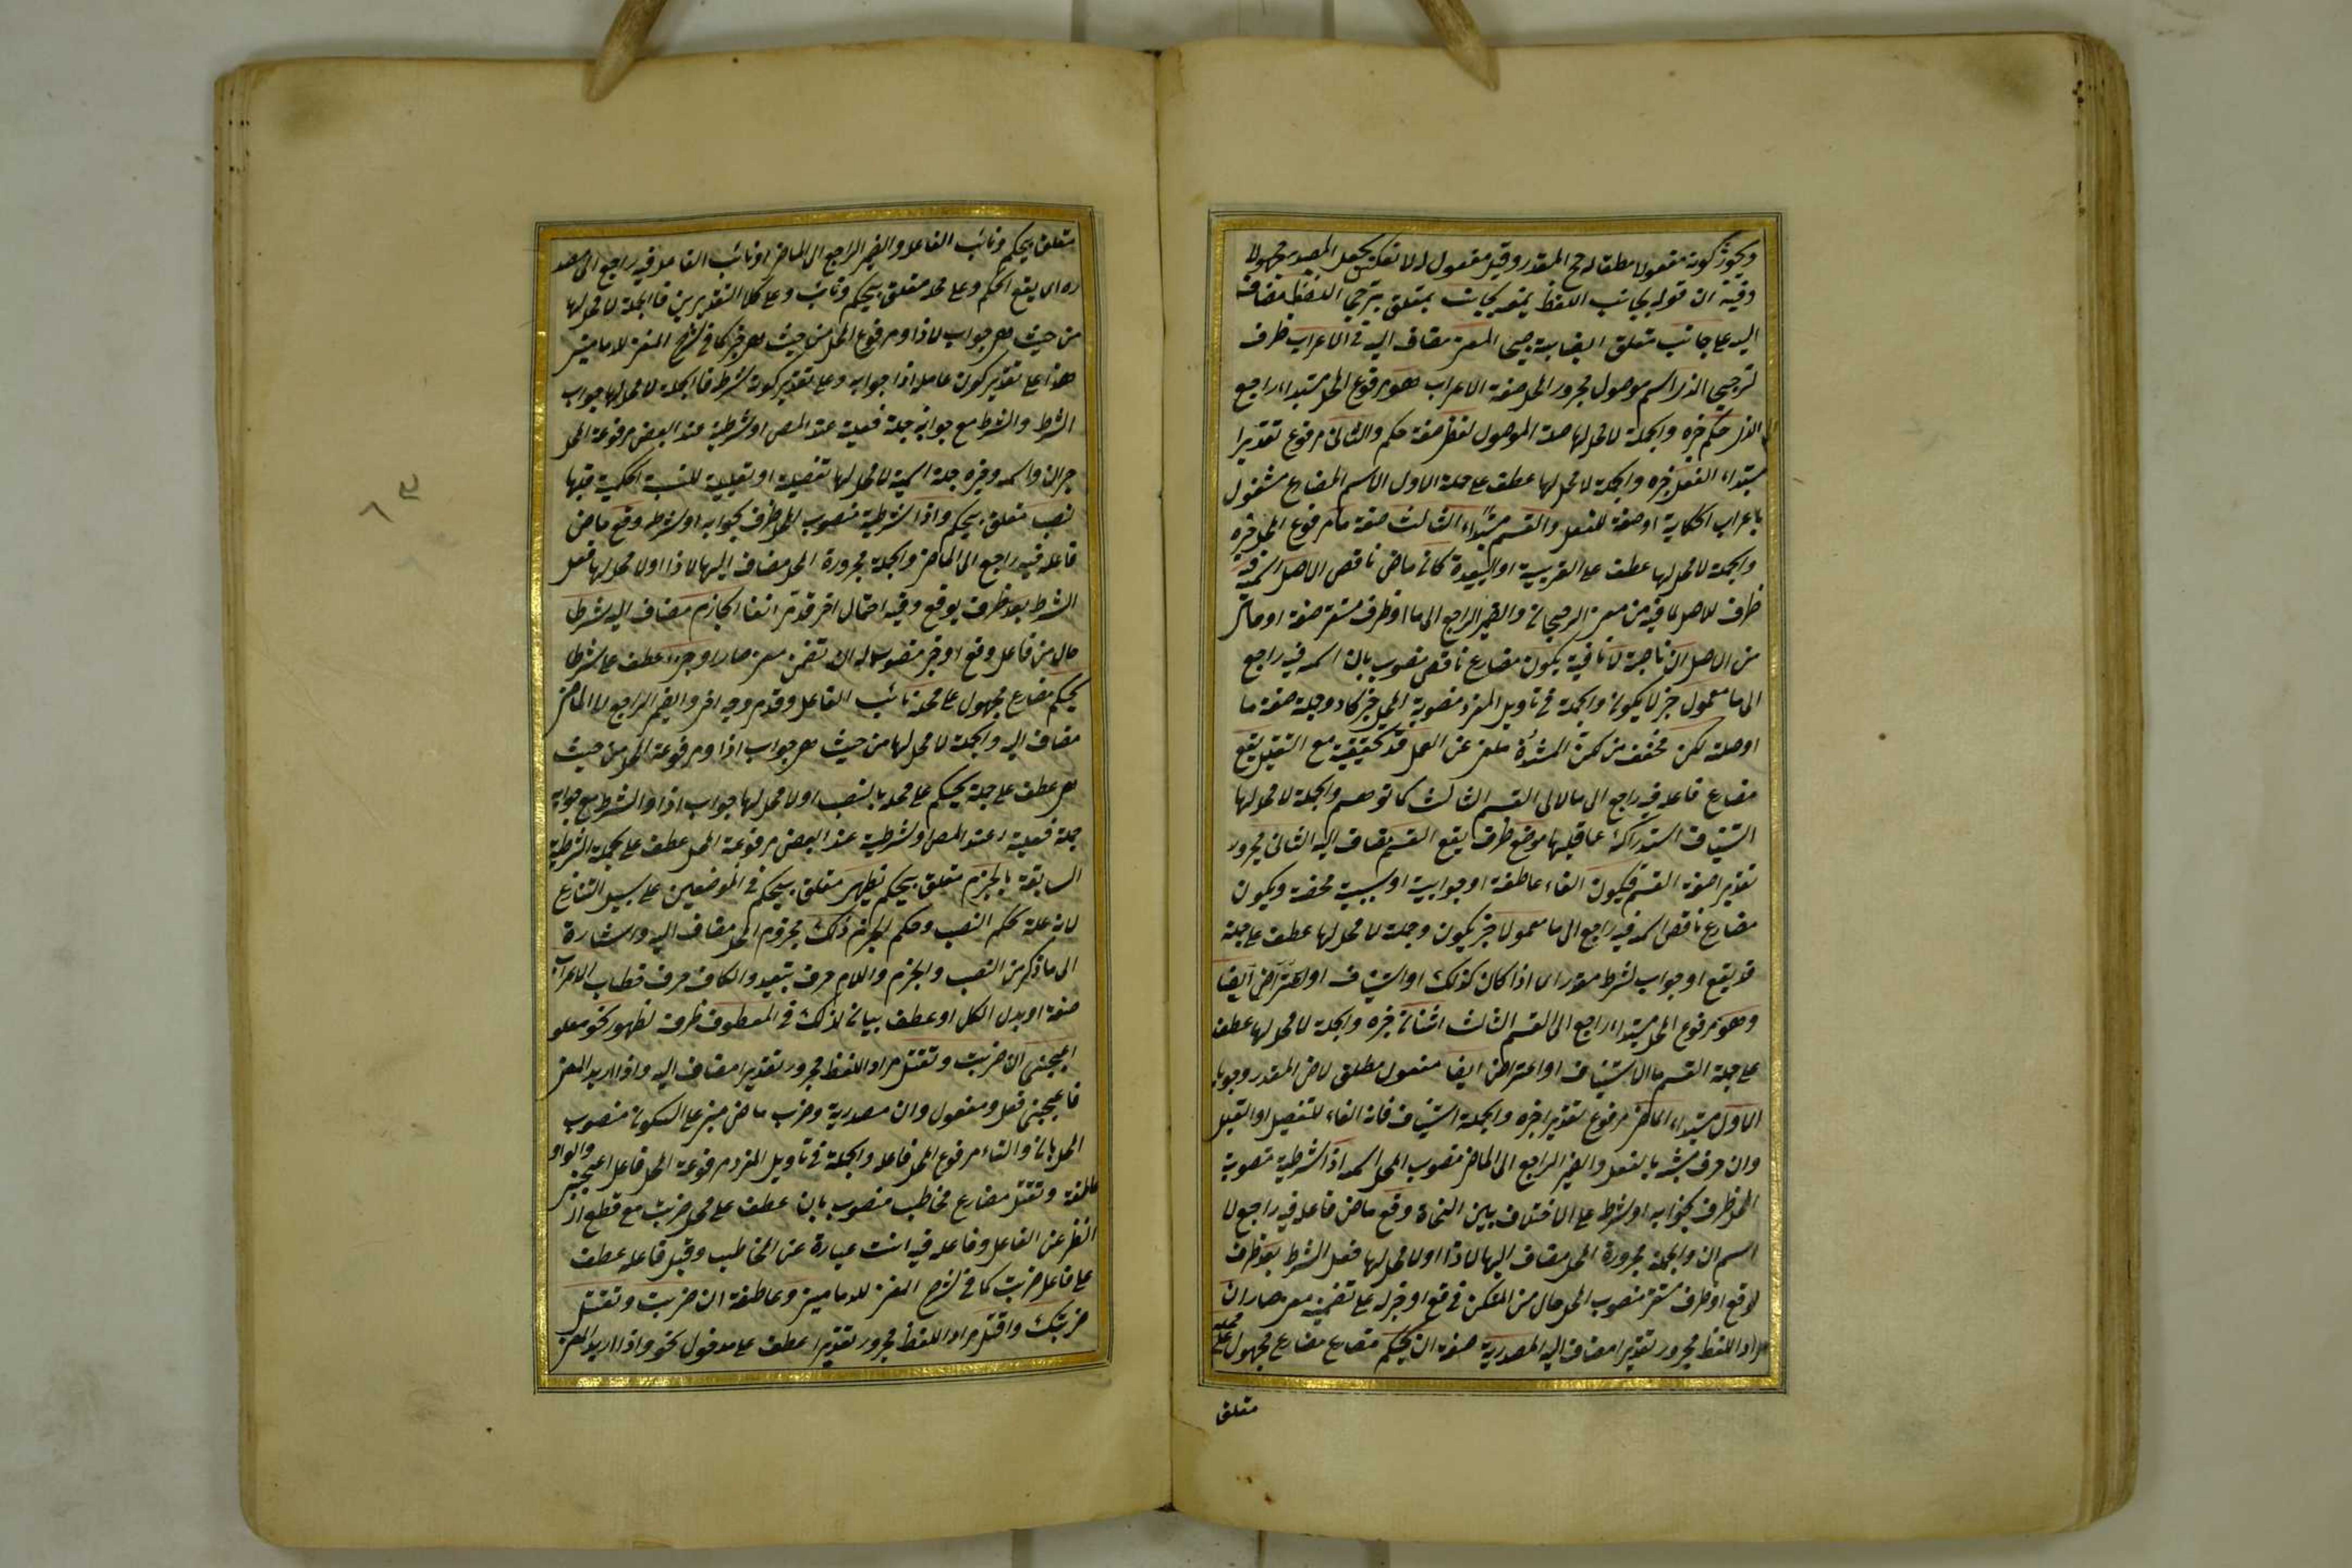 ويجوز كونه مفعولا مطلقا له المقدر وقيل مفعول له لا تفكن بجعل المصدر مجهولا
وفيه ان قوله بجانب اللفظ بجانب متعلق بترجيح اللفظ مضاف
اليه على جانب متعلق ترجيح المعنى مضاف اليه فى الاعراب ظرف
لترجيح الذى اسم موصول مجرور المحل صفة الاعراب هو مرفوع المحل مبتداء راجع
الى الذى حكم خبره والجملة لا محل لها صلة الموصول لفظى صفة حكم والثانى مرفوع تقديرا
مبتداء الفعل خبره والجملة لا محل لها عطف على جملة الاول الاسم المضارع مشغول
باعراب الحكاية او صفة للفعل والقسم مبتداء الثالث صفة ما مرفوع المحل خبره
والجملة لا محل لها عطف على القريبة او البعيدة كان ماض ناقص الاصل اسمه فيه
ظرف للاصل لما فيه من معنى الرجحان والضمير الراجع الى ما او ظرف مستقر صفة او حال
من الاصل ان ناصبة لا نافية يكون مضارع ناقص منصوب بان اسمه فيه راجع
الى ما معمول خبر لا يكون والجملة فى تأويل المفرد منصوبة المحل خبر كان وجملة صفة ما
او صلة لكن مخفف من لكن المشددة ملغى عن العمل قد تحقيقية مع التقليل يقع
مضارع فاعله فيه راجع الى ما لا الى القسم الثالث كما توهم والجملة لا محل لها
استيناف استدراك عما قبلها موضع ظرف يقع القسم مضاف اليه الثانى مجرور
تقديرا صفة القسم فيكون الفاء عاطفة او جوابية او سببية محضة ويكون
مضارع ناقص اسمه فيه راجع الى ما معمولا خبر يكون وجملة لا محل لها عطف على جملة
قد يقع او جواب لشرط مقدر اى اذا كان كذلك او استيناف او اعتراض ايضا
وهو مرفوع المحل مبتداء راجع الى القسم الثالث اثنان خبره والجملة لا محل لها عطف
على جملة القسم ما لا استيناف او اعتراض ايضا مفعول مطلق لاض المقدر وجوبا
الاول مبتداء الماضى مرفوع تقديرا خبره والجملة استيناف فانه الفاء للتفصيل او التعليل
وان حرف مشبه بالفعل والضمير الراجع الى الماضى منصوب المحل اسمه اذا شرطية منصوبة
المحل ظرف لجوابه او لشرطه على الاختلاف بين النحاة وقع ماض فاعله فيه راجع الى
اسم ان والجملة مجرورة المحل مضاف اليها لاذا او لا محل لها فعل الشرط بعد ظرف
لوقع او ظرف مستقر منصوب المحل حال من المستكن فى وقع او خبر له على تضمينه معنى صار ان
مراد اللفظ مجرور تقديرا مضاف اليه المصدرية صفة ان يحكم مضارع مجهول على محله
متعلق
متعلق بيحكم ونائب الفاعل والضمير الراجع الى الماضى او نائب الفاعل فيه راجع الى مصدره
اى يقع الحكم وعلى محله متعلق بيحكم ونائب وعلى كلا التقديرين فالجملة لا محل لها
من حيث هى جواب لاذا ومرفوع المحل من حيث هى خبر كما فى شرح المغنى للدمامينى
هذا على تقدير كون عامل اذا جوابه وعلى تقدير كونه شرطه فالجملة لا محل لها جواب
الشرط والشرط مع جوابه جملة فعلية عند المص او شرطية عند البعض مرفوعة المحل
خبر ان واسمه وخبره جملة اسمية لا محل لها تفصيلية او تعليلية للنسبة الحكمية قبلها
نصب متعلق بيحكم واذا شرطية منصوب المحل ظرف لجوابه او لشرطه وقع ماض
فاعله فيه راجع الى الماضى والجملة مجرورة المحل مضاف اليها لاذا او لا محل لها فعل
الشرط بعد ظرف لوقع وفيه احتمال اخر قد مر انفا الجازم مضاف اليه شرطا
حال من فاعل وقع او خبر منصوب له ان تضمن معنى صار او جزاء عطف على شرطا
يحكم مضارع مجهول على محله نائب الفاعل وقد مر وجه اخر والضمير الراجع الى الماضى
مضاف اليه والجملة لا محل لها من حيث هى جواب اذا ومرفوعة المحل من حيث
هى عطف على جملة يحكم على محله بالنصب او لا محل لها جواب اذا والشرط مع جوابه
جملة فعلية عند المص او شرطية عند البعض مرفوعة المحل عطف على الجملة الشرطية
السابقة بالجزم متعلق بيحكم لظهر متعلق بيحكم فى الموضعين على سبيل التنازع
لانه علة حكم النصب وحكم الجزم ذلك مجرور المحل مضاف اليه واشارة
الى ما ذكر من النصب والجزم واللام حرف تبعيد والكاف حرف خطاب الاعراب
صفة او بدل الكل او عطف بيان لذلك فى المعطوف ظرف لظهور نحو معلو
اعجبنى ان ضربت وتقتل مراد اللفظ مجرور تقديرا مضاف اليه واذا اريد المعنى
فاعجبنى فعل ومفعول وان مصدرية وضرب ماض مبنى على السكون منصوب
المحل بان والتاء مرفوع المحل فاعله والجملة فى تأويل المفرد مرفوعة المحل فاعل اعجبنى والواو
عاطفة وتقتل مضارع مخاطب منصوب بان عطف على محل ضربت مع قطع
النظر عن الفاعل وفاعله فيه انت عبارة عن المخاطب وقيل فاعله عطف
على فاعل ضربت كما فى شرح المغنى للدمامينى وعاطفة ان ضربت وتقتل
ضربتك واقتل مراد اللفظ مجرور تقديرا عطف على مدخول نحو واذا اريد المعنى